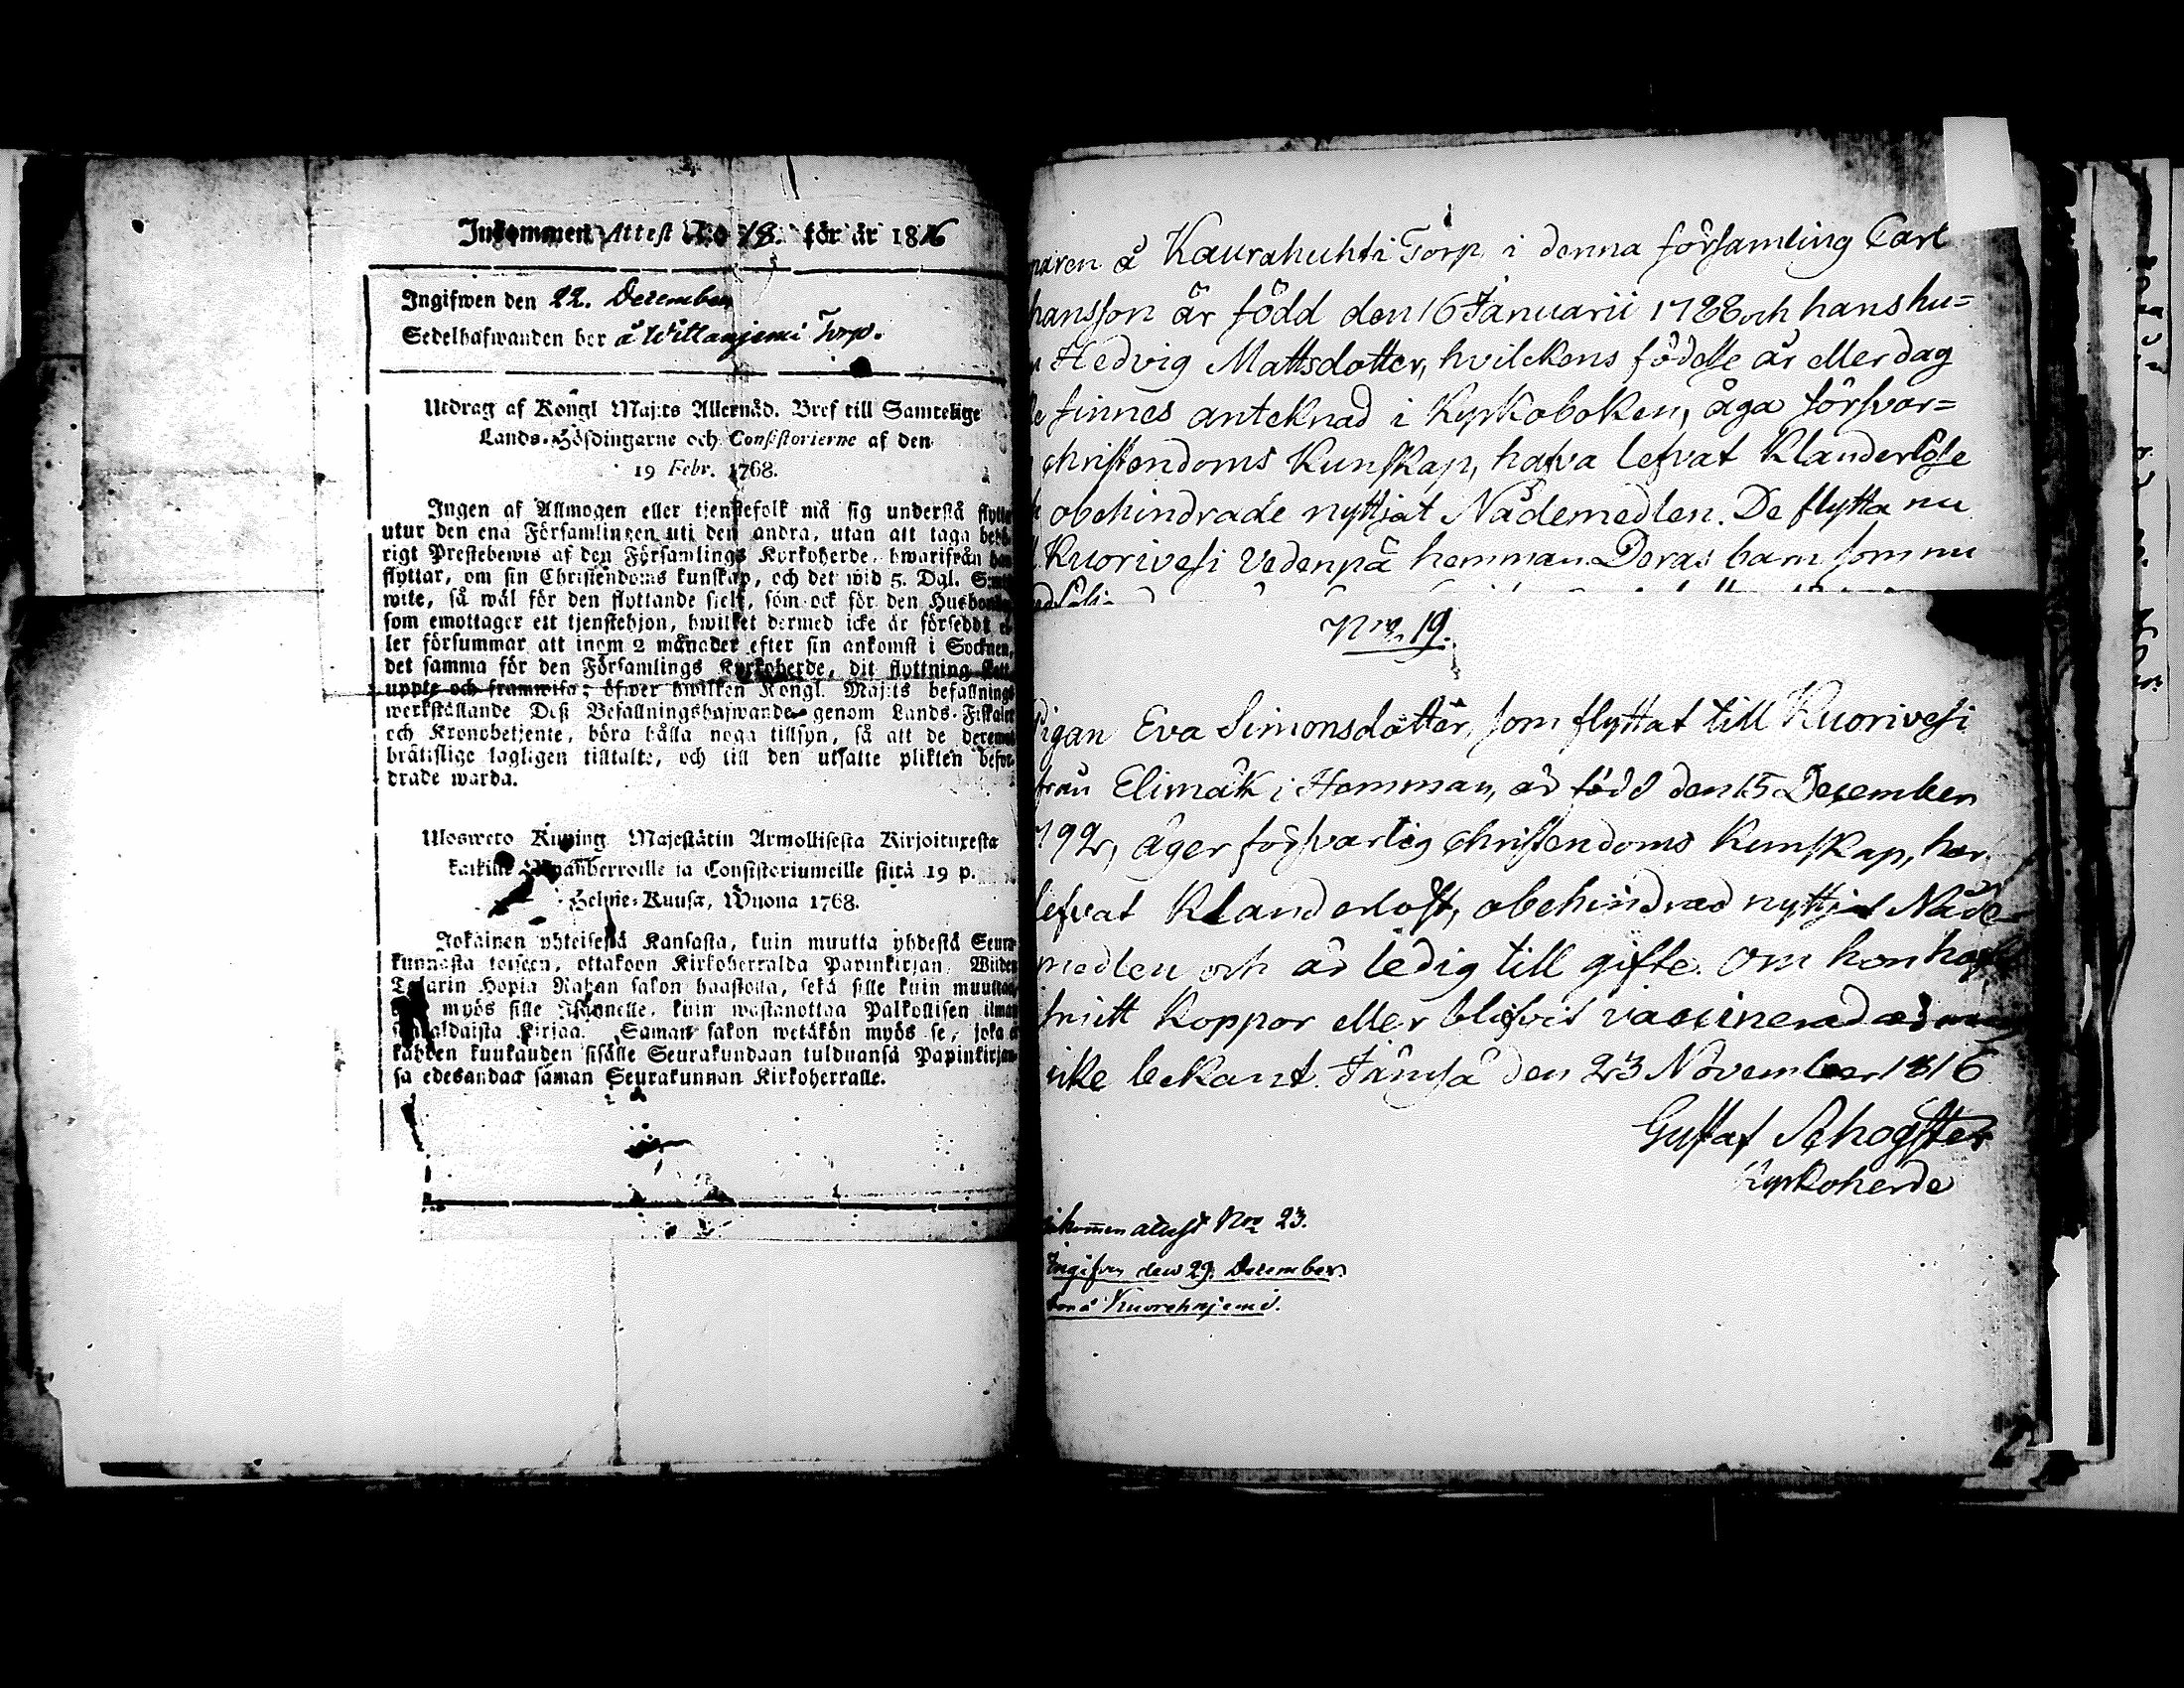 Inkommen Attest No 18. för år 1816
Ingifwen den 22. December
Sedelhafwanden bor å Torp.
Utdrag af Kongl Maj:ts Allernåd. Bref till Samtelige
Lands-Höfdingarne och Consistorierne af den
19 Febr. 1768.
Ingen af Allmogen eller tjenstefolk må sig understå flytta
utur den ena Församlingen uti den andra, utan att taga behö-
rigt Prestebewis af den Församlings Kyrkoherde, hwarifrån han
flyttar, om sin Christendoms kunskap, och det wid 5. Dal. S:mts
wite, så wäl för den flyttande sielf, som ock för den Husbonde
som emottager ett tjenstehjon, hwilket dermed icke är försedd; el-
ler försummar att inom 2 månader efter sin ankomst i Socknen,
det samma för den Församlings Kyrkoherde, dit flyttning skett
uppte och framwisa; öfwer hwilken Kongl. Maj:ts befallnings
werkställande Deß Befallningshafwande genom Lands-Fiskaler
och Kronobetjente, böra hålla noga tillsyn, så att de deremot
brätslige lagligen tilltalte, och till den utsatte plikten befor-
drade warda.
Ulosweto Kuning Majestätin Armollisesta Kirjoituxesta
kaikille Maanherroille ja Consistoriumeille siitä 19 p.
Helmie-Kuusa, Wuona 1768.
Jokainen yhteisestä Kansasta, kuin muutta yhdestä Seura-
kunnasta toiseen, ottakoon Kirkoherralda Papinkirjan, Wiiden
Talarin Hopia Rahan sakon haastolla, sekä sille kuin muuttaa,
myös sille Isännelle, kuin wastanottaa Palkollisen ilman
Kirjaa. Saman sakon wetäkön myös se, joka ei
kahden kuukauden sisälle Seurakundaan tulduansa Papinkirjan-
sa edesandaa saman Seurakunnan Kirkoherralle.
å Kaurahuhti Torp i denna församling Carl
hansson är född den 16 Januarii 1788 och hans hu=
Hedvig Mattsdotter, hvilckens födelse år eller dag
finnes anteknad i Kyrkoboken, äga försvar=
christendoms Kunskap, hafva lefvat Klanderlöse
obehindrade nyttjat Nådemedlen. De flytta nu
Kuorivesi Vedenpä hemman. Deras barn som nu
Nro 19.
Pigan Eva Simonsdotter, som flyttat till Kuorivesi
från Elimäk i Hemman, är född den 15 December
1792, äger försvarlig christendoms Kunskap, har
lefvat Klanderlöst, obehindrad nyttjat Nåde=
medlen och är ledig till gifte. Om hon haft
Koppor eller blifvit vaccinerad är
icke bekant. Jämsä den 23 November 1816
Gustaf Schogster
Kyrkoherde
Inkommen attest Nro 23.
Ingifven den 29. December.
bor å